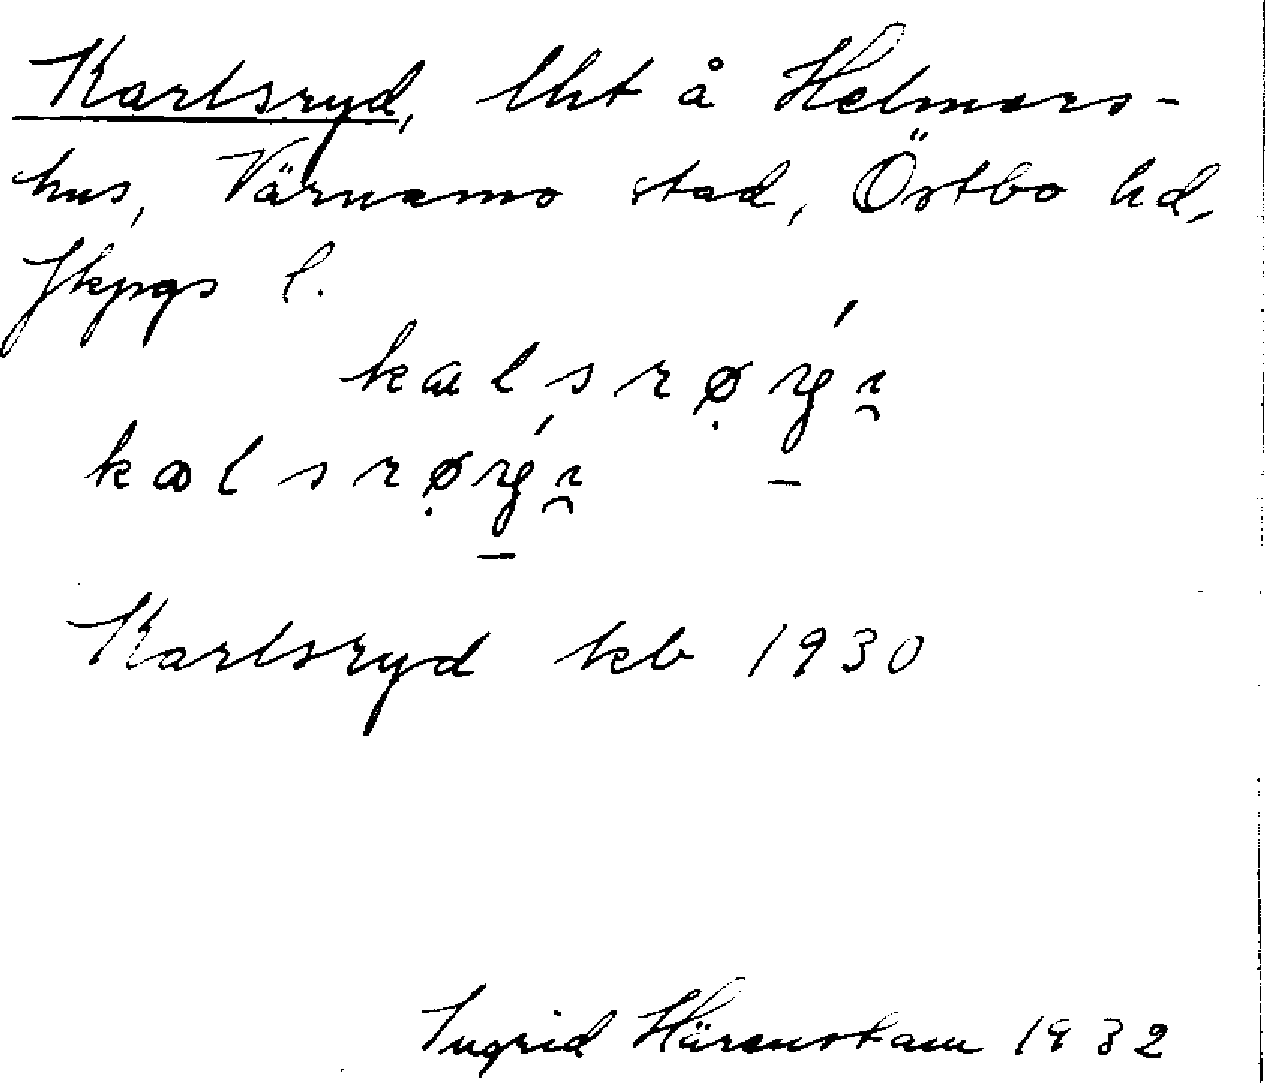 Karlsryd, lht å Helmers-
hus, Värnamo stad, Östbo hd,
Jkpgs l.
Karlsryd kb 1930
Ingrid Härenstam 1932